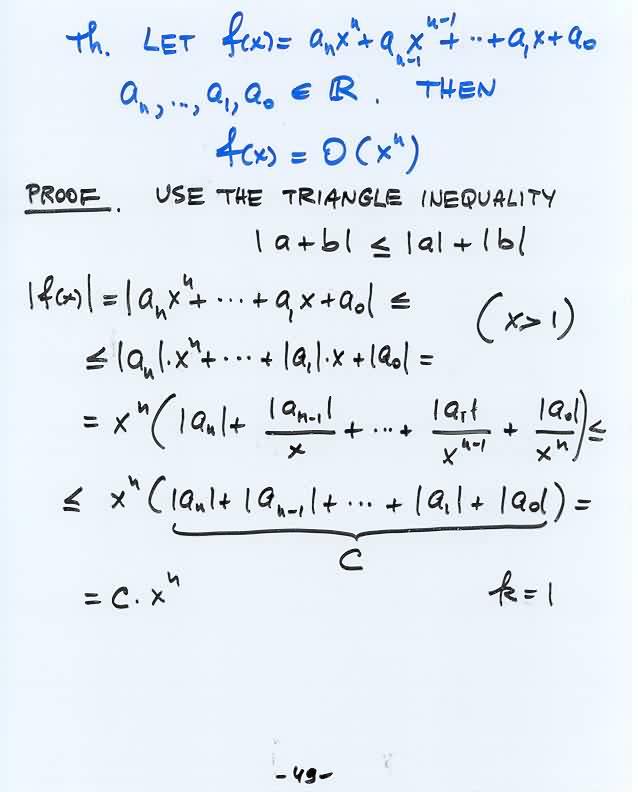 Th. LET f(x) = aₙxⁿ + aₙ₋₁xⁿ⁻¹ + ··· + a₁x + a₀
aₙ, ..., a₁, a₀ ∈ ℝ. THEN
f(x) = O(xⁿ)
PROOF. USE THE TRIANGLE INEQUALITY
|a + b| ≤ |a| + |b|
|f(x)| = |aₙxⁿ + ··· + a₁x + a₀| ≤ (x > 1)
≤ |aₙ|·xⁿ + ··· + |a₁|·x + |a₀| =
= xⁿ(|aₙ| + |aₙ₋₁|/x + ··· + |a₁|/xⁿ⁻¹ + |a₀|/xⁿ) ≤
≤ xⁿ(|aₙ| + |aₙ₋₁| + ··· + |a₁| + |a₀|) =
C
= C · xⁿ k = 1
- 49 -